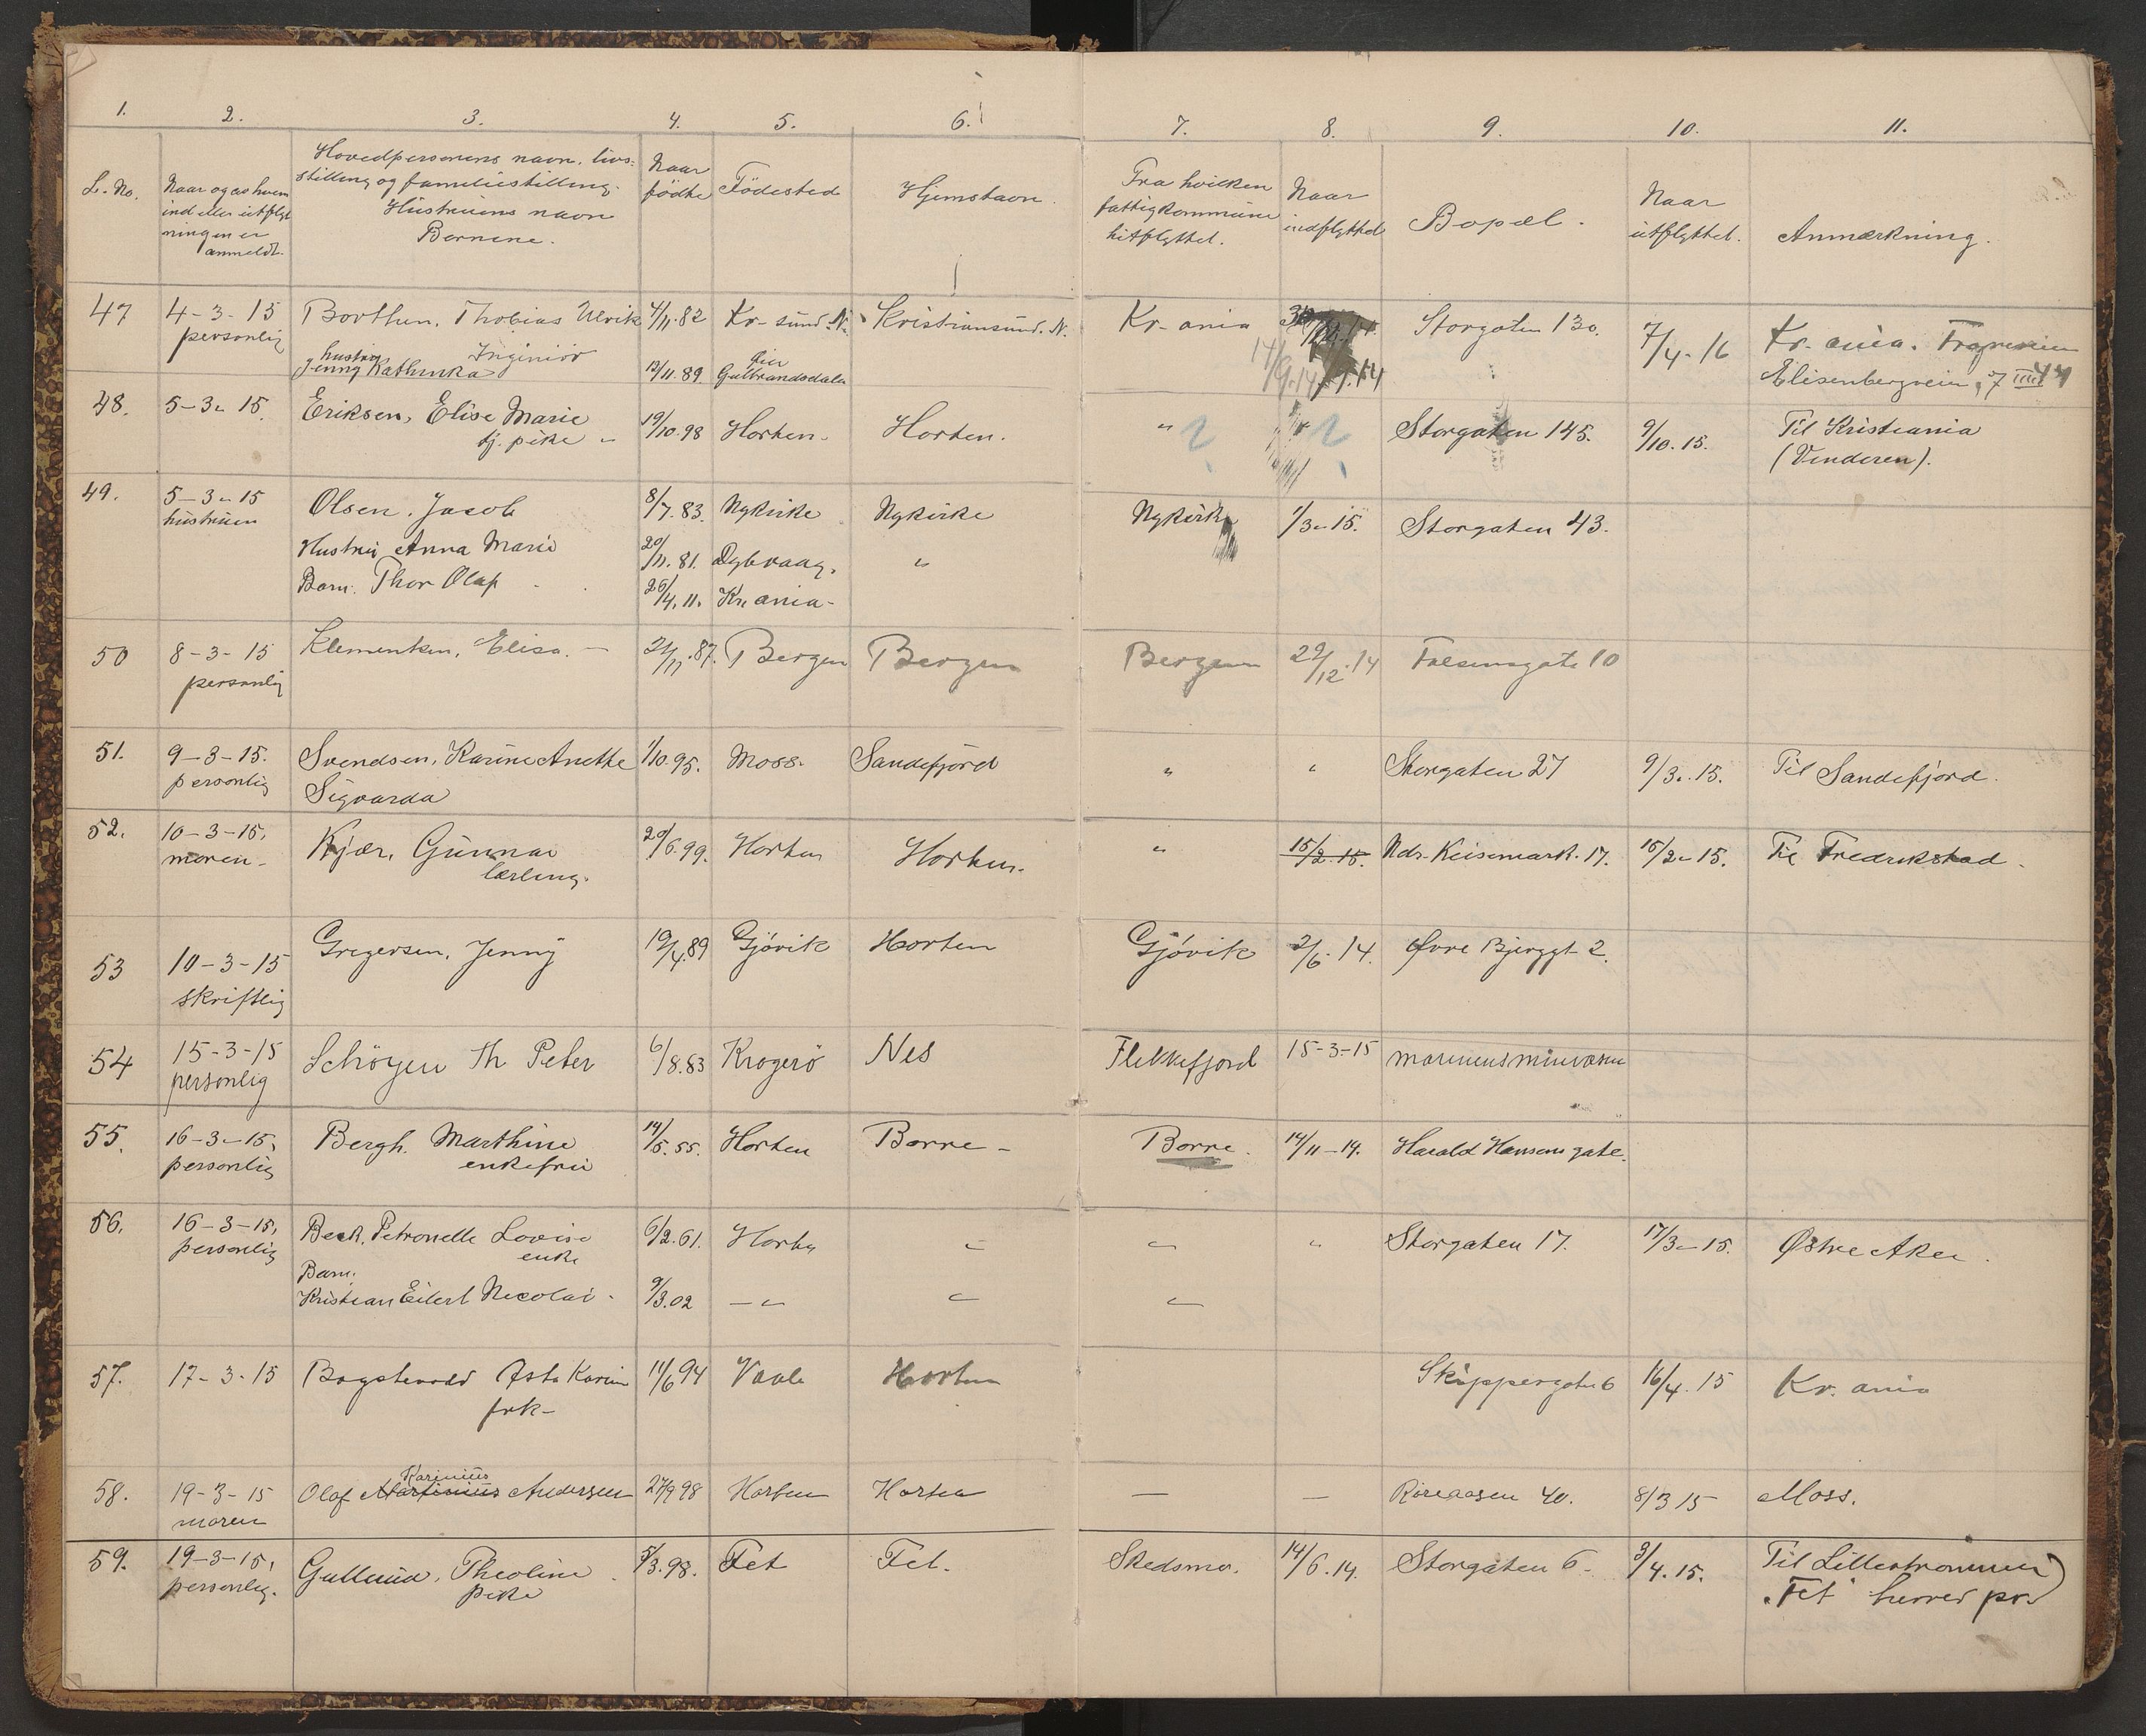 1. 2. 3. 4. 5. 6. 7. 8. 9. 10. 11.
L. No.
Naar og av hvem
ind eller utflyt
ningen er
anmeldt.
Hovedpersonens navn, livs-
stilling og familiestilling.
Hustruens navn
Børnene.
Naar
fødte
Fødested
Hjemstavn.
Fra hvilken
fattigkommune
hitflyttet.
Naar
indflyttet
Bopæl.
Naar
utflyttet.
Anmærkning.
47 4-3-15 Borthen, Thobias Ulrik 4/11.82 Kr-sund.N. Kristiansund.N. Kr-ania Storgaten 130. 7/4-16 Kr. ania.
personlig Inginiør
hustru
Jenny Kathinka 12/11.89 Gulbrandsdalen 14/9.14 Elisenbergvein 7 IIII
48. 5-3-15. Eriksen, Elise Marie 19/10.98 Horten. Horten. " ? ? Storgaten 145. 9/10.15. Til Kristiania
tj. pike (Vinderen).
49. 5-3-15 Olsen. Jacob 8/7.83. Nykirke Nykirke Nykirke 1/3-15. Storgaten 43.
hustruen
Hustru Anna Marie 20/11.81. Dybvaag. "
Barn. Thor Olaf 26/4.11. Kr. ania-
50 8-3-15 Klementsen, Elisa. 21/11.87. Bergen Bergen Bergen 29/12.14 Falsensgate 10
personlig
51. 9-3-15. Svendsen, Karine Anethe 1/10.95. Moss. Sandefjord " " Storgaten 27 9/3.15. Til Sandefjord.
personlig Sigvarda
52. 10-3-15. Kjær, Gunnar 20/6.99. Horten Horten. " 15/2.15. Ndr. Keisemark. 17. 15/2-15. Til Fredrikstad.
moren- lærling.
53 10-3-15 Gregersen, Jenny 19/4.89 Gjøvik Horten Gjøvik 2/6.14. Øvre Bjerggt 2.
skriftlig
54 15-3-15 Schøyen Th Peter 6/8.83 Kragerø Nes Flekkefjord 15-3-15 marinens minevæsen
personlig
55. 16-3-15. Bergh. Marthine 14/5.55. Horten Borre- Borre. 14/11-14. Harald Hansens gate.
personlig enkefru
56. 16-3-15. Beck. Petronelle Lovise 6/2.61. Horten " " " Storgaten 17. 17/3-15. Østre Aker.
personlig enke
Barn.
Kristian Eilert Nicolai. 9/3.02 - " " "
57. 17-3-15 Asta Karin 11/6 94 Vaale Horten Skippergaten 6 16/4.15 Kr. ania
frk-
Karinius
58. 19-3-15 Olaf Martinius Andersen 27/9 98 Horten Horten — — Røreaasen 40. 8/3 15 Moss.
moren
59. 19-3-15, Gullerud, Theoline 5/3.98. Fet Fet. Skedsmo. 14/6.14. Storgaten 6- 3/4.15. Til Lillestrømmen
personlig. pike "Fet" herred